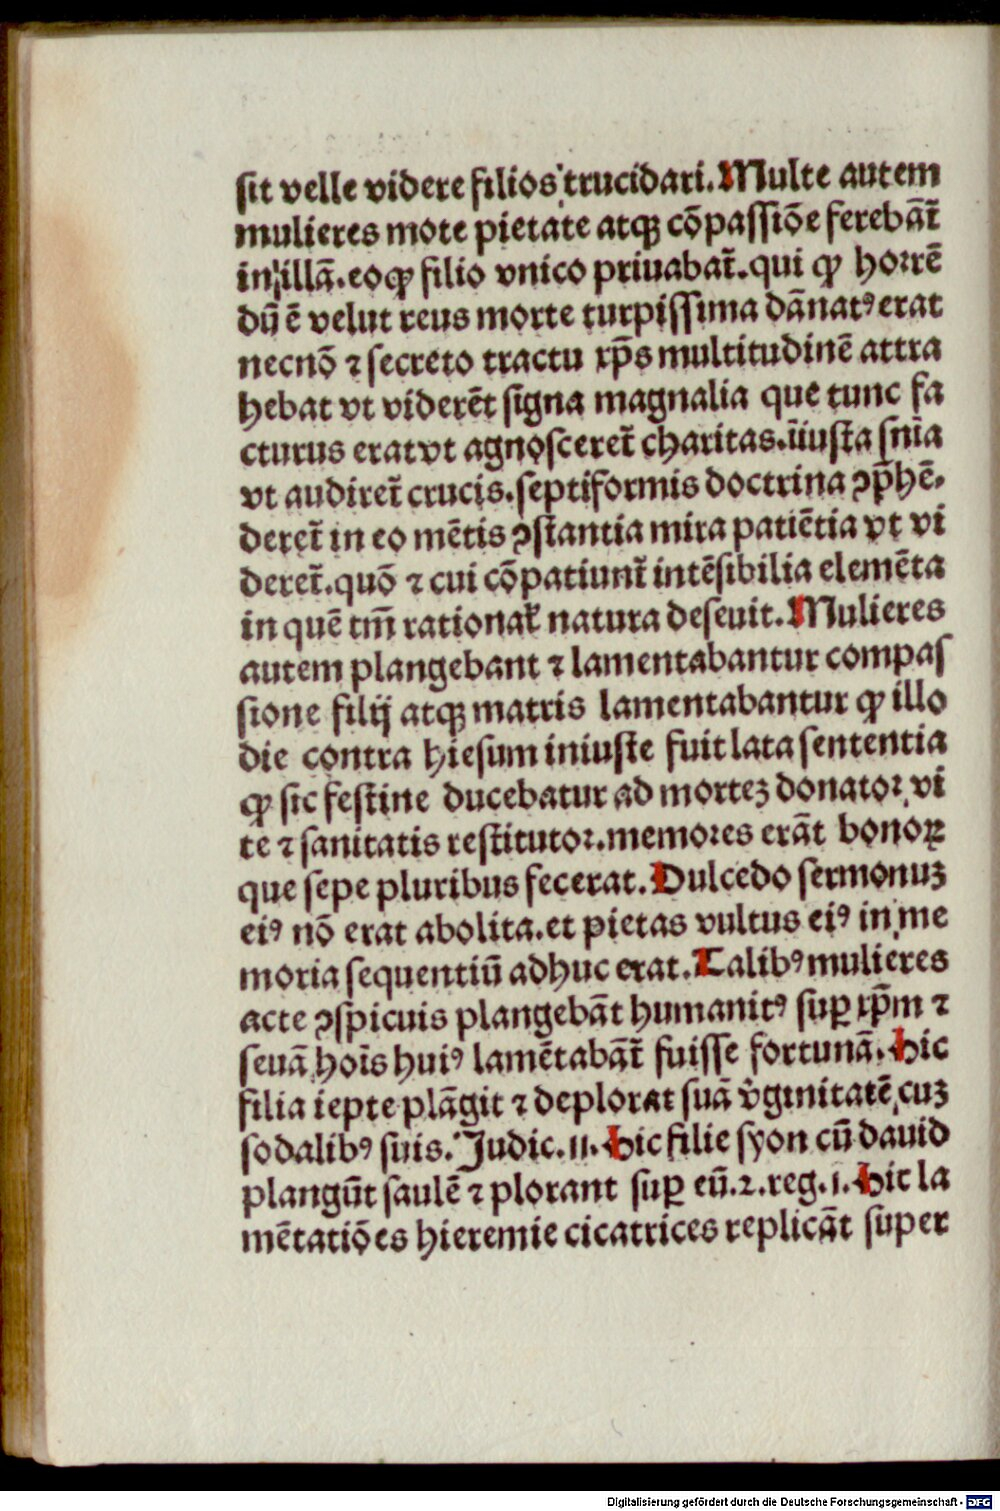 sit velle videre filios trucidari. Multe autem
mulieres mote pietate atqꝫ cōpassiōe ferebāt̄
in illā. eoꝙ filio vnico priuabat̄. qui ꝙ horrē
dū ē velut reus morte turpissima dānatꝰ erat
necnō ⁊ secreto tractu xp̄s multitudinē attra
hebat vt viderēt signa magnalia que tunc fa
cturus erat vt agnosceret̄ charitas. iīusta sn̄ia
vt audiret̄ crucis. septiformis doctrina ꝯp̄hē-
deret̄ in eo mētis ꝯstantia mira patiētia vt vi
deret̄. quō ⁊ cui cōpatiunt̄ intēsibilia elemēta
in quē tm̄ rationaꝉ natura deseuit. Mulieres
autem plangebant ⁊ lamentabantur compas
sione filij atqꝫ matris lamentabantur ꝙ illo
die contra hiesum iniuste fuit lata sententia
ꝙ sic festine ducebatur ad morteꝫ donator vi
te ⁊ sanitatis restitutor. memores erāt bonoꝝ
que sepe pluribus fecerat. Dulcedo sermonuꝫ
eiꝰ nō erat abolita. et pietas vultus eiꝰ in me
moria sequentiū adhuc erat. Talibꝰ mulieres
acte ꝯspicuis plangebāt humanitꝰ suꝑ xp̄m ⁊
seuā hoīs huiꝰ lamētabāt̄ fuisse fortunā. Hic
filia iepte plāgit ⁊ deplorat suā v̄ginitatē cuꝫ
sodalibꝰ suis. Judic. 11. Hic filie syon cū dauid
plangūt saulē ⁊ plorant suꝑ eū. 2. reg. 1. Hic la
mētatiōes hieremie cicatrices replicāt super
Digitalisierung gefördert durch die Deutsche Forschungsgemeinschaft - DFG